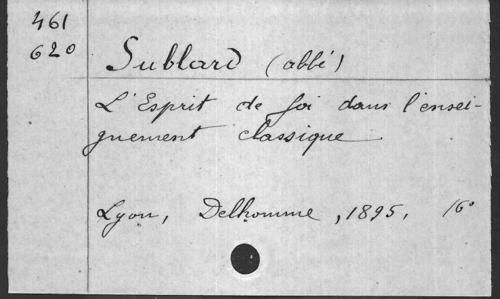 461
620
Sublard (abbé)
L'Esprit de foi dans l'ensei-
gnement classique
Lyon, Delhomme, 1895, 16°